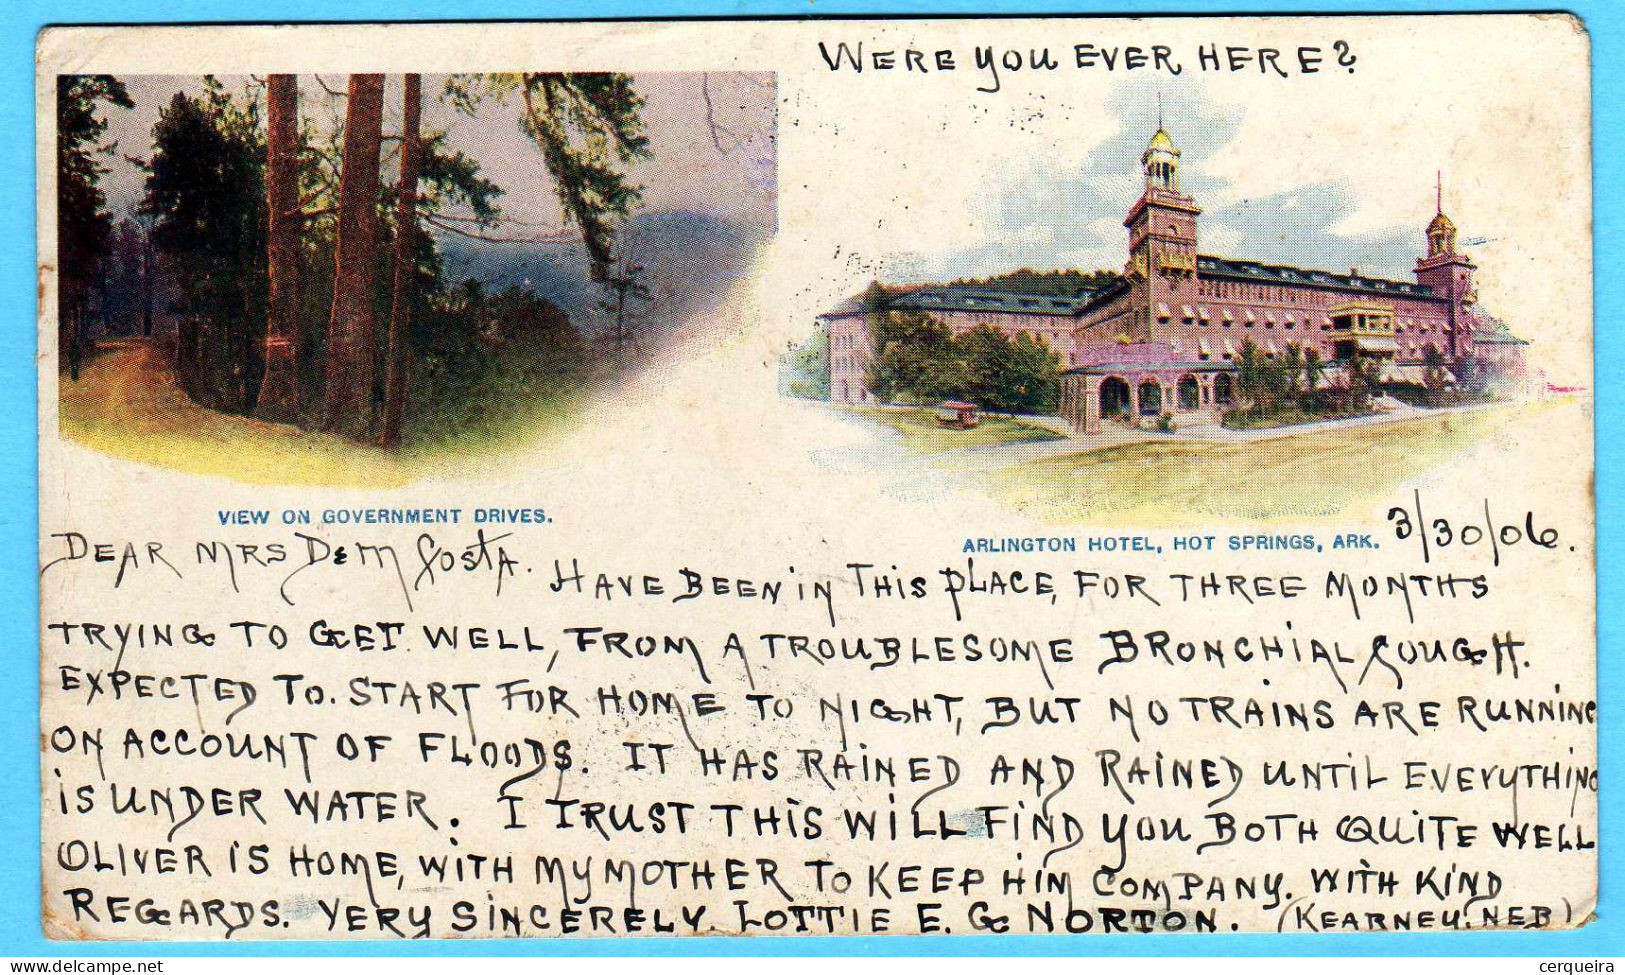 WERE YOU EVER HERE?
VIEW ON GOVERNMENT DRIVES.
ARLINGTON HOTEL, HOT SPRINGS, ARK.
3/30/06.
DEAR MRS DEM COSTA.
HAVE BEEN IN THIS PLACE, FOR THREE MONTHS
TRYING TO GET WELL, FROM A TROUBLESOME BRONCHIAL COUGH.
EXPECTED TO. START FOR HOME TO NIGHT, BUT NO TRAINS ARE RUNNING
ON ACCOUNT OF FLOODS. IT HAS RAINED AND RAINED UNTIL EVERYTHING
IS UNDER WATER. I TRUST THIS WILL FIND YOU BOTH QUITE WELL
OLIVER IS HOME, WITH MY MOTHER TO KEEP HIM COMPANY. WITH KIND
REGARDS. VERY SINCERELY. LOTTIE E. G NORTON. (KEARNEY. NEB)
delcampe.net
cerqueira